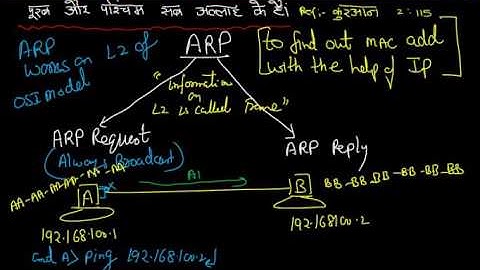 पूरब और पश्चिम सब अल्लाह के हैं। Ref:- कुरआन 2:115
ARP works on L2 of OSI model
ARP
[to find out MAC add with the help of IP]
"information on L2 is called frame"
ARP Request
(Always Broadcast)
ARP Reply
AA-AA-AA-AA-AA-AA
A
A1
B
BB-BB-BB-BB-BB-BB
192.168.100.1
192.168.100.2
cmd A> Ping 192.168.100.2